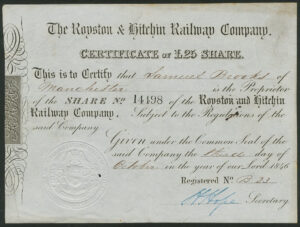 The Royston & Hitchin Railway Company.
CERTIFICATE OF £25 SHARE.
This is to Certify that Samuel Brooks of
Manchester is the Proprietor
of the SHARE No 14498 of the Royston and Hitchin
Railway Company. Subject to the Regulations of the
said Company
Given under the Common Seal of the
said Company the third day of
October in the year of our Lord 1846
Registered No. B
Secretary.